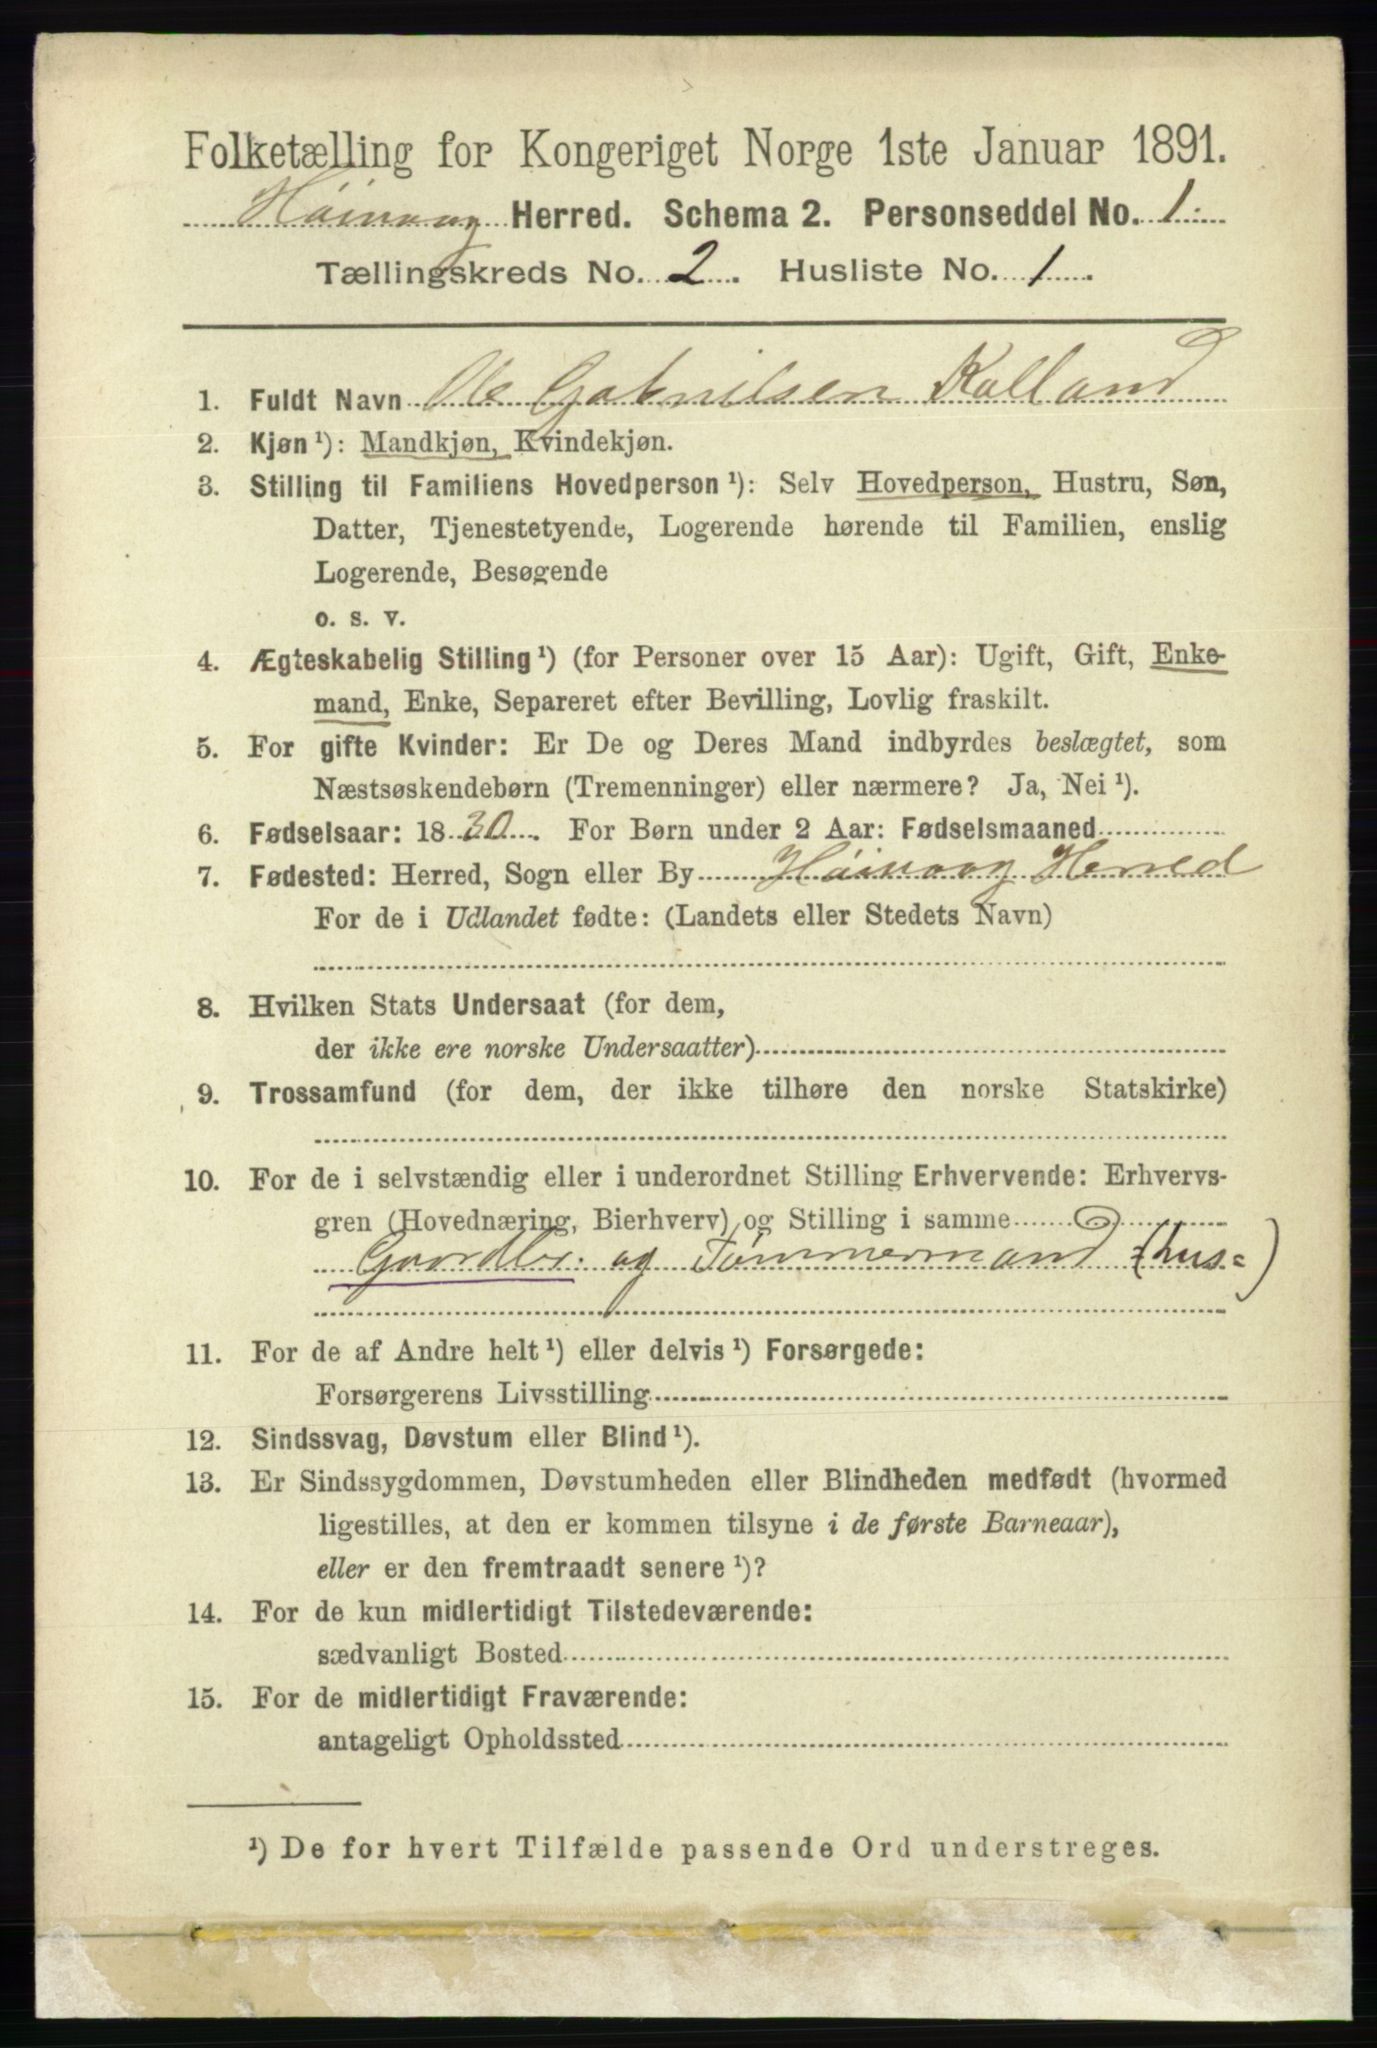 Folketælling for Kongeriget Norge 1ste Januar 1891.
Høivaag Herred. Schema 2. Personseddel No. 1.
Tællingskreds No. 2. Husliste No. 1.
1. Fuldt Navn Ole Gabrielsen Kalland
2. Kjøn ¹): Mandkjøn, Kvindekjøn.
3. Stilling til Familiens Hovedperson ¹): Selv Hovedperson, Hustru, Søn,
Datter, Tjenestetyende, Logerende hørende til Familien, enslig
Logerende, Besøgende
o. s. v.
4. Ægteskabelig Stilling ¹) (for Personer over 15 Aar): Ugift, Gift, Enke-
mand, Enke, Separeret efter Bevilling, Lovlig fraskilt.
5. For gifte Kvinder: Er De og Deres Mand indbyrdes beslægtet, som
Næstsøskendebørn (Tremenninger) eller nærmere? Ja, Nei ¹).
6. Fødselsaar: 1830. For Børn under 2 Aar: Fødselsmaaned
7. Fødested: Herred, Sogn eller By Høivaag Herred
For de i Udlandet fødte: (Landets eller Stedets Navn)
8. Hvilken Stats Undersaat (for dem,
der ikke ere norske Undersaatter)
9. Trossamfund (for dem, der ikke tilhøre den norske Statskirke)
10. For de i selvstændig eller i underordnet Stilling Erhvervende: Erhvervs-
gren (Hovednæring, Bierhverv) og Stilling i samme
Gaardbr. og Tømmermand (hus=)
11. For de af Andre helt ¹) eller delvis ¹) Forsørgede:
Forsørgerens Livsstilling
12. Sindssvag, Døvstum eller Blind ¹).
13. Er Sindssygdommen, Døvstumheden eller Blindheden medfødt (hvormed
ligestilles, at den er kommen tilsyne i de første Barneaar),
eller er den fremtraadt senere ¹)?
14. For de kun midlertidigt Tilstedeværende:
sædvanligt Bosted
15. For de midlertidigt Fraværende:
antageligt Opholdssted
¹) De for hvert Tilfælde passende Ord understreges.